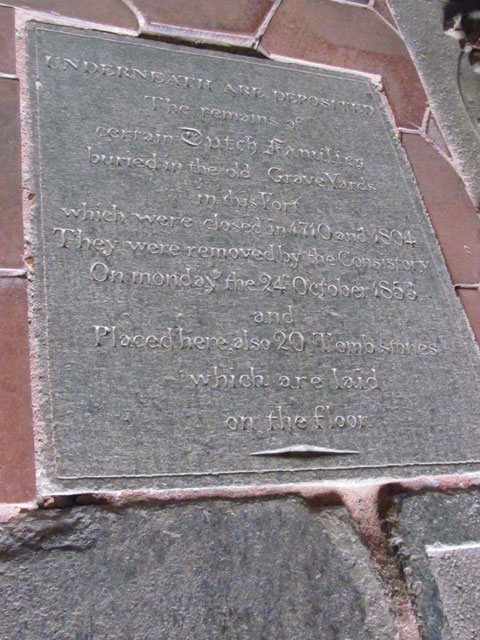 UNDERNEATH ARE DEPOSITED
The remains of
certain Dutch Families
buried in the old GraveYards
in this Fort
which were closed in 1710 and 1804
They were removed by the Consistory
On monday the 24th October 1853
and
Placed here also 20 Tomb stones
which are laid
on the floor